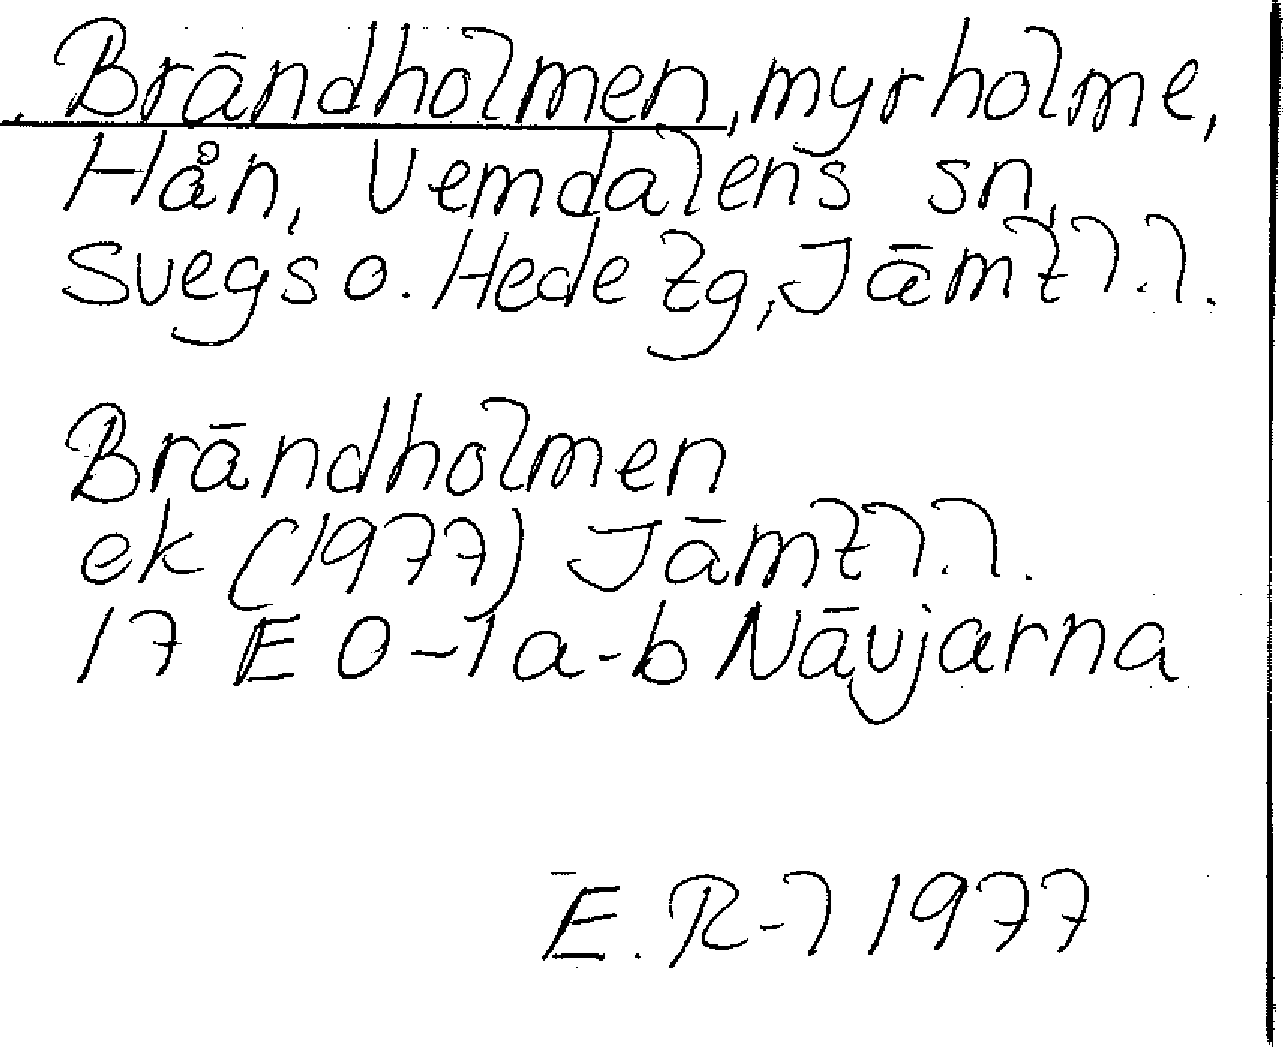 Brändholmen, myrholme,
Hån, Vemdalens sn,
Svegs o. Hede tg, Jämtl. l.
Brändholmen
ek (1977) Jämtl. l.
17 E 0-1 a-b Nävjarna
E. R-l 1977